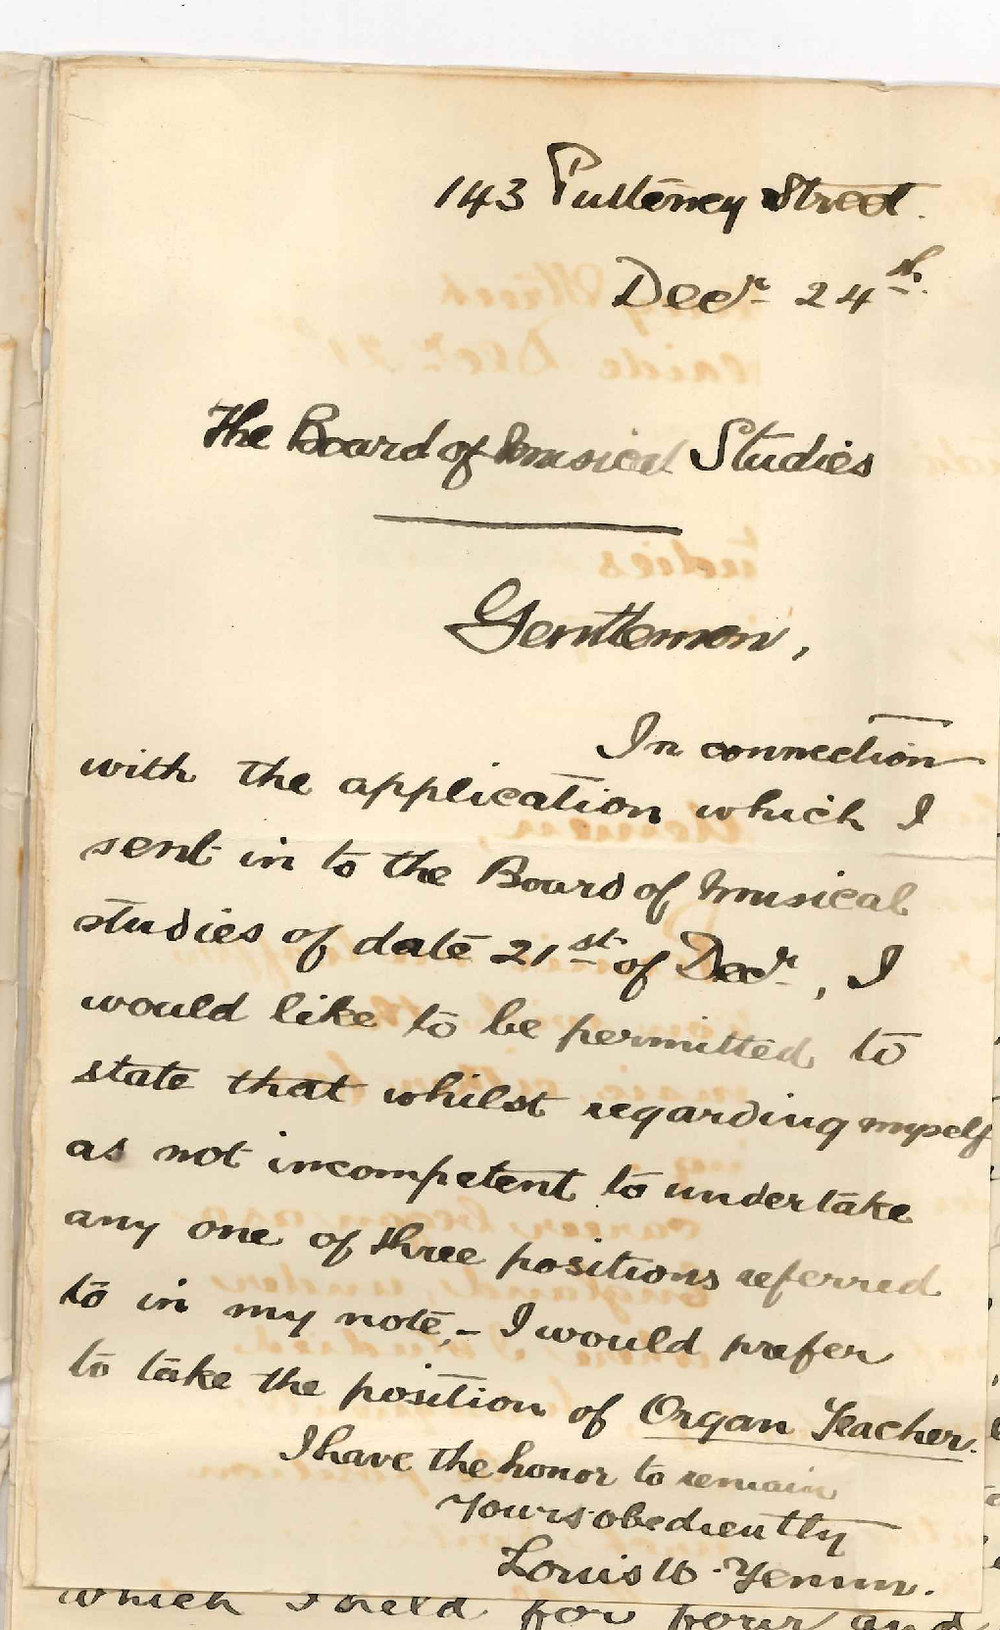 143 Pulteney Street.
Decr. 24th.
The Board of Musical Studies
Gentlemen,
In connection
with the application which I
sent in to the Board of Musical
studies of date 21st. of Decr., I
would like to be permitted to
state that whilst regarding myself
as not incompetent to undertake
any one of three positions referred
to in my note, – I would prefer
to take the position of Organ Teacher.
I have the honor to remain
Yours obediently
Louis W. Yemm.
which I held for four and